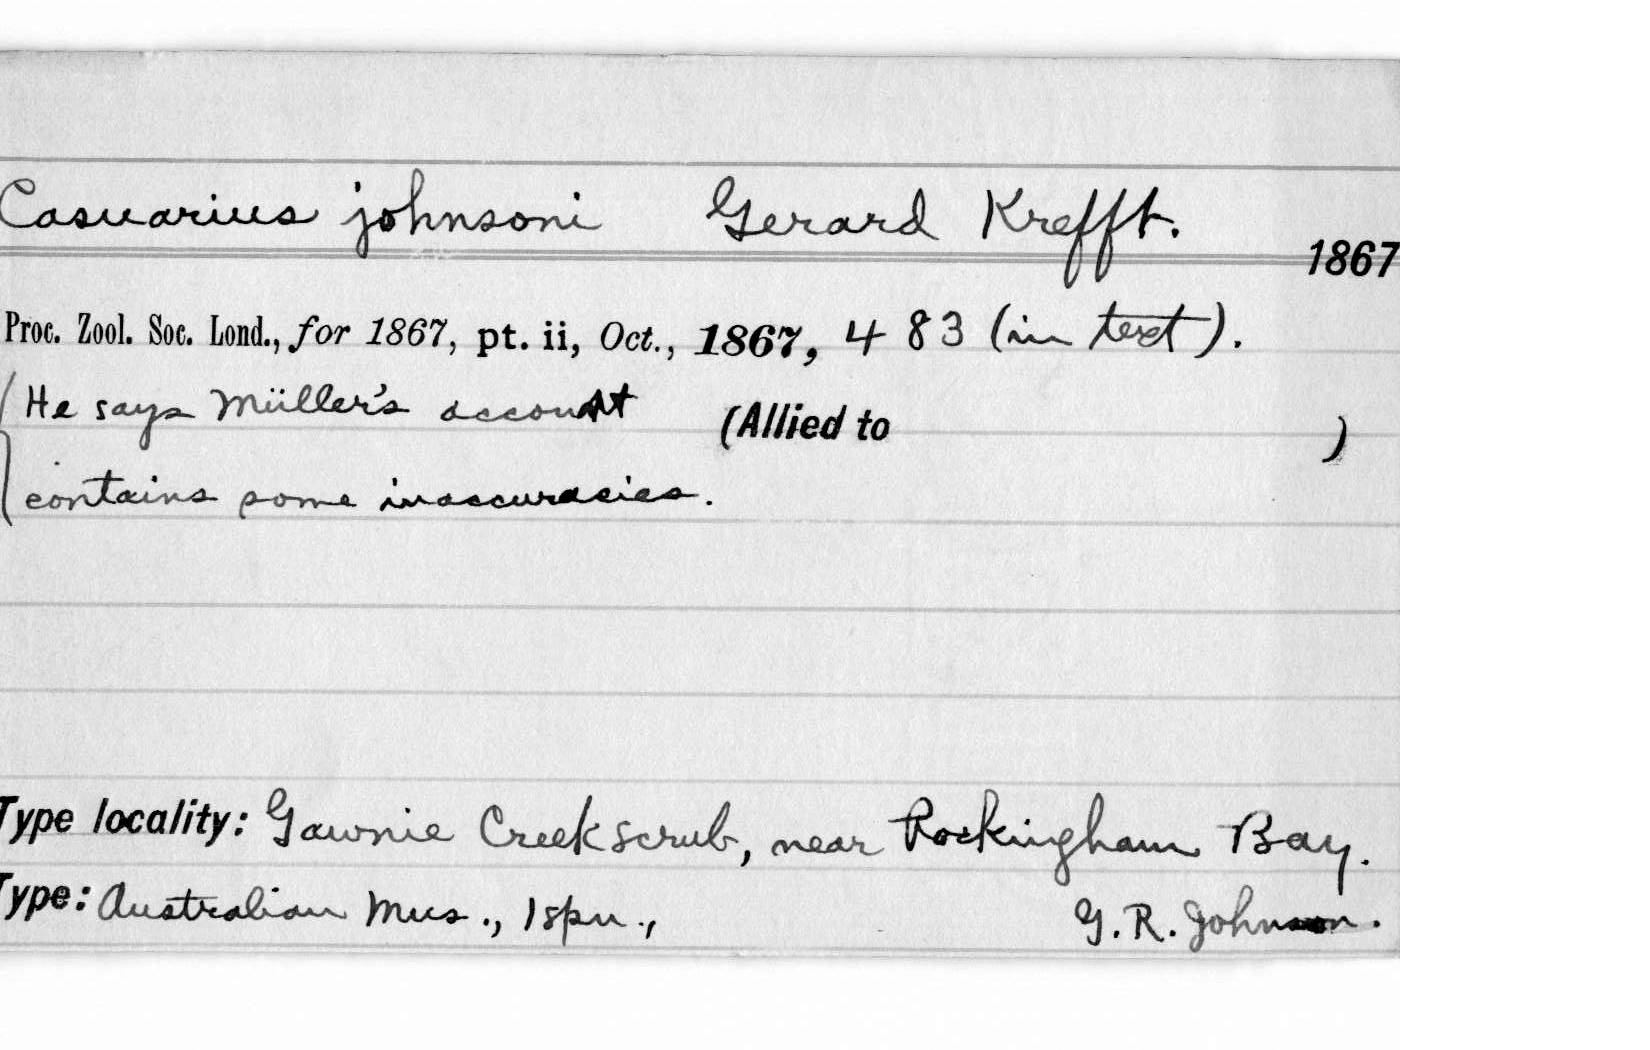 Casuarius johnsoni Gerard Krefft.
1867
Proc. Zool. Soc. Lond., for 1867, pt. ii, Oct., 1867, 483 (in text).
(He says Müller's account (Allied to )
contains some inaccuracies.
Type locality: Gawnie Creek scrub, near Rockingham Bay.
Type: Australian Mus., 1 spn., G. R. Johnson.